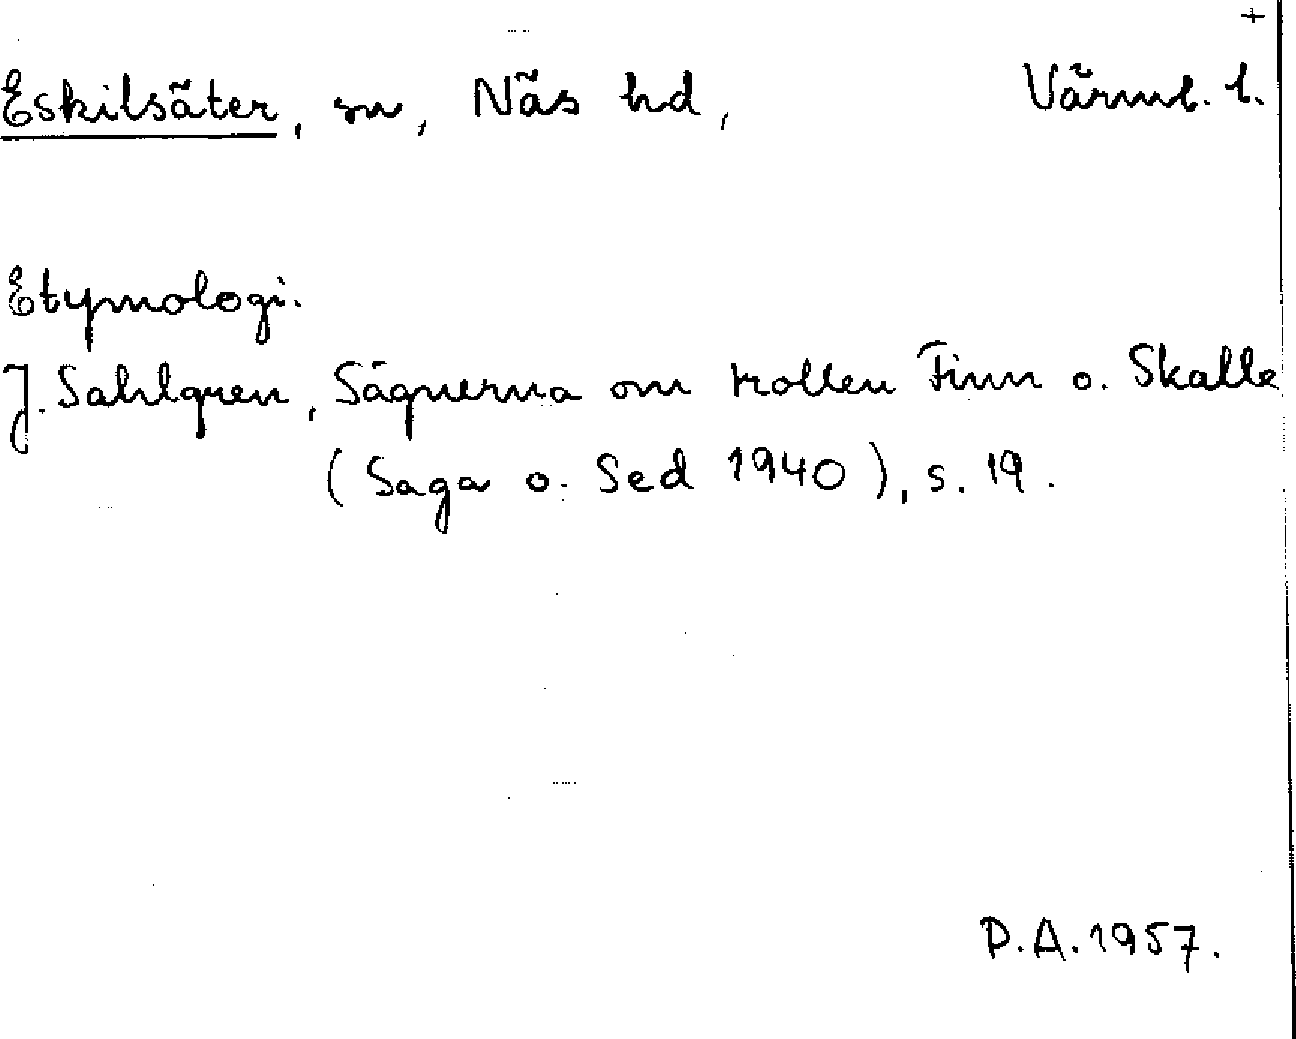 +
Eskilsäter, sn, Näs hd, Värml. l.
Etymologi.
J. Sahlgren, Sägnerna om trollen Finn o. Skalle
(Saga o. Sed 1940), s. 19.
P.A. 1957.